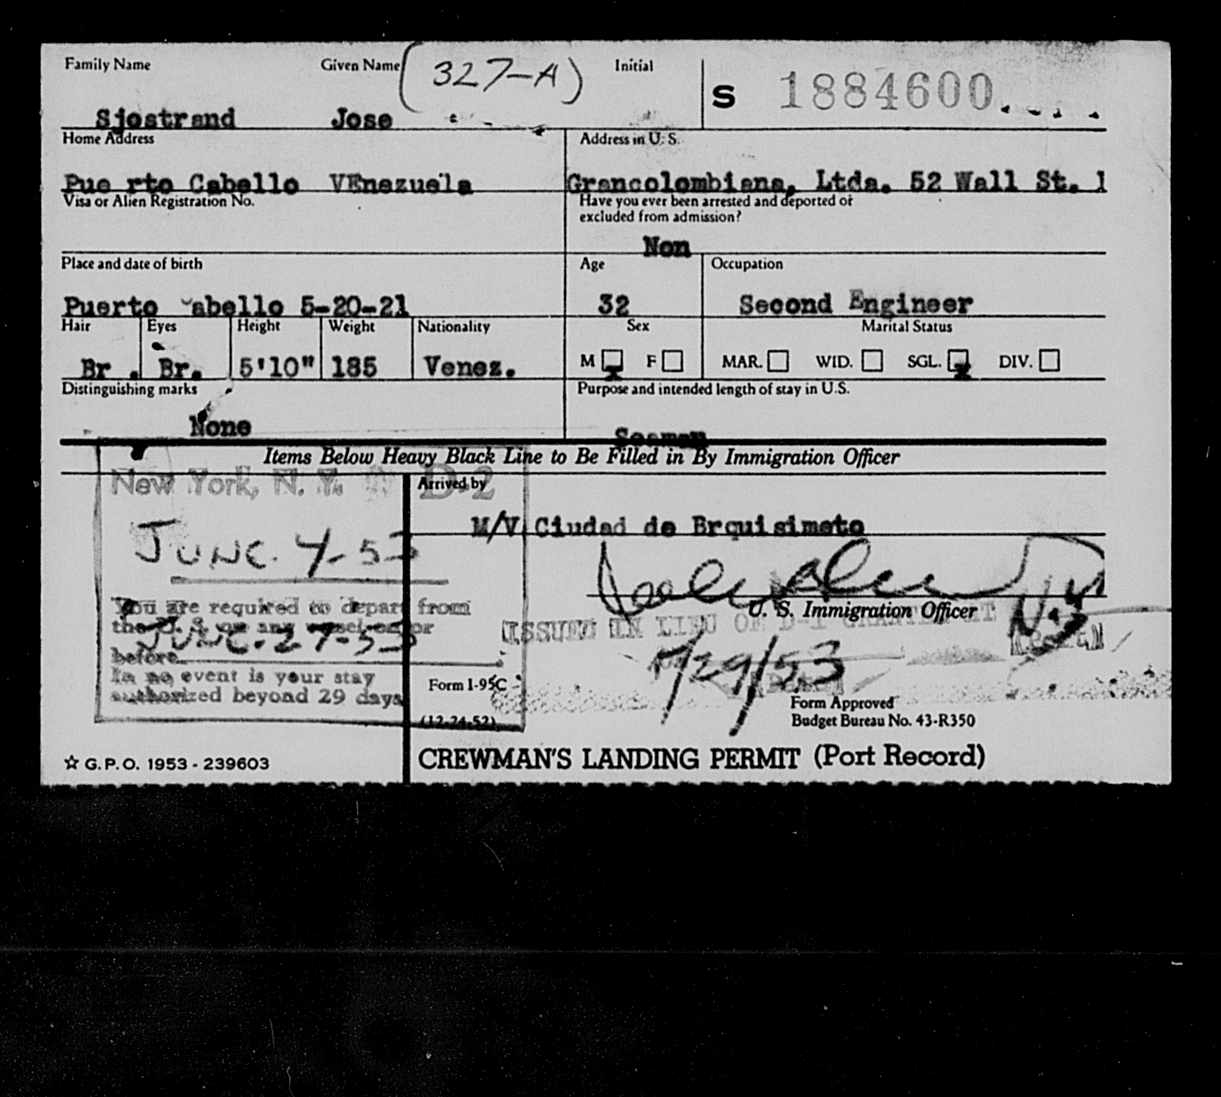 Family Name Given Name (327-A) Initial S 1884600
Sjostrand Jose
Home Address Address in U. S.
Pue rto Cabello VEnezuela Grancolombiana, Ltda. 52 Wall St. 1
Visa or Alien Registration No. Have you ever been arrested and deported or
excluded from admission?
Non
Place and date of birth Age Occupation
Puerto Cabello 5-20-21 32 Second Engineer
Hair Eyes Height Weight Nationality Sex Marital Status
Br . Br. 5'10" 185 Venez. M F MAR. WID. SGL. DIV.
Distinguishing marks Purpose and intended length of stay in U.S.
None Seaman
Items Below Heavy Black Line to Be Filled in By Immigration Officer
New York, N. Y. D-2 Arrived by
M/V Ciudad de Brquisimeto
JUNE. 4-53
You are required to depart from
the U. S. on any vessel on or
JUNE. 27-53
before
In no event is your stay
authorized beyond 29 days
U. S. Immigration Officer N.Y
ISSUED IN LIEU OF D-1 GRANTED AT
/29/53
Form I-95C
(12-24-52)
Form Approved
Budget Bureau No. 43-R350
☆ G.P.O. 1953 - 239603 CREWMAN'S LANDING PERMIT (Port Record)